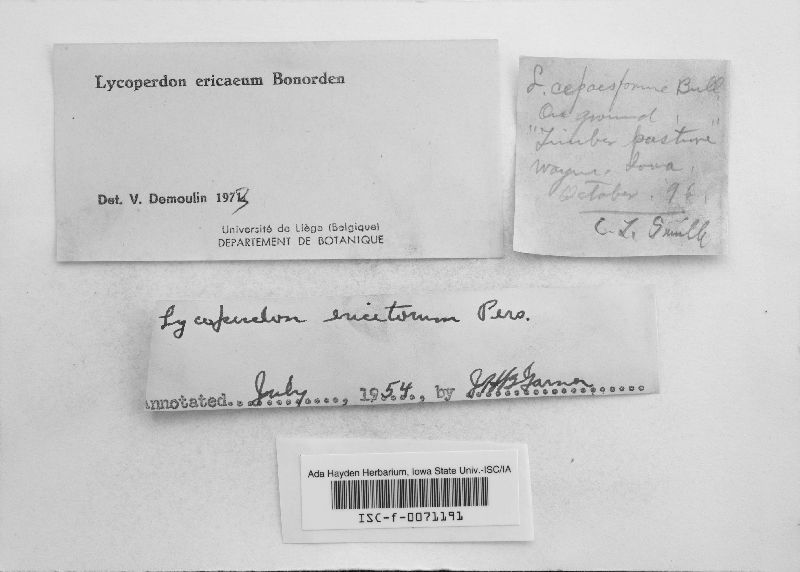 Lycoperdon ericaeum Bonorden
Det. V. Demoulin 1971
Université de Liège (Belgique)
DEPARTEMENT DE BOTANIQUE
L. cepaesforme Bull.
On ground,
"Timber pasture"
Wayne, Iowa,
October. 96,
C. L. Smith
Lycoperdon ericetorum Pers.
Annotated July, 1954, by Garner
Ada Hayden Herbarium, Iowa State Univ.-ISC/IA
ISC-f-0071191